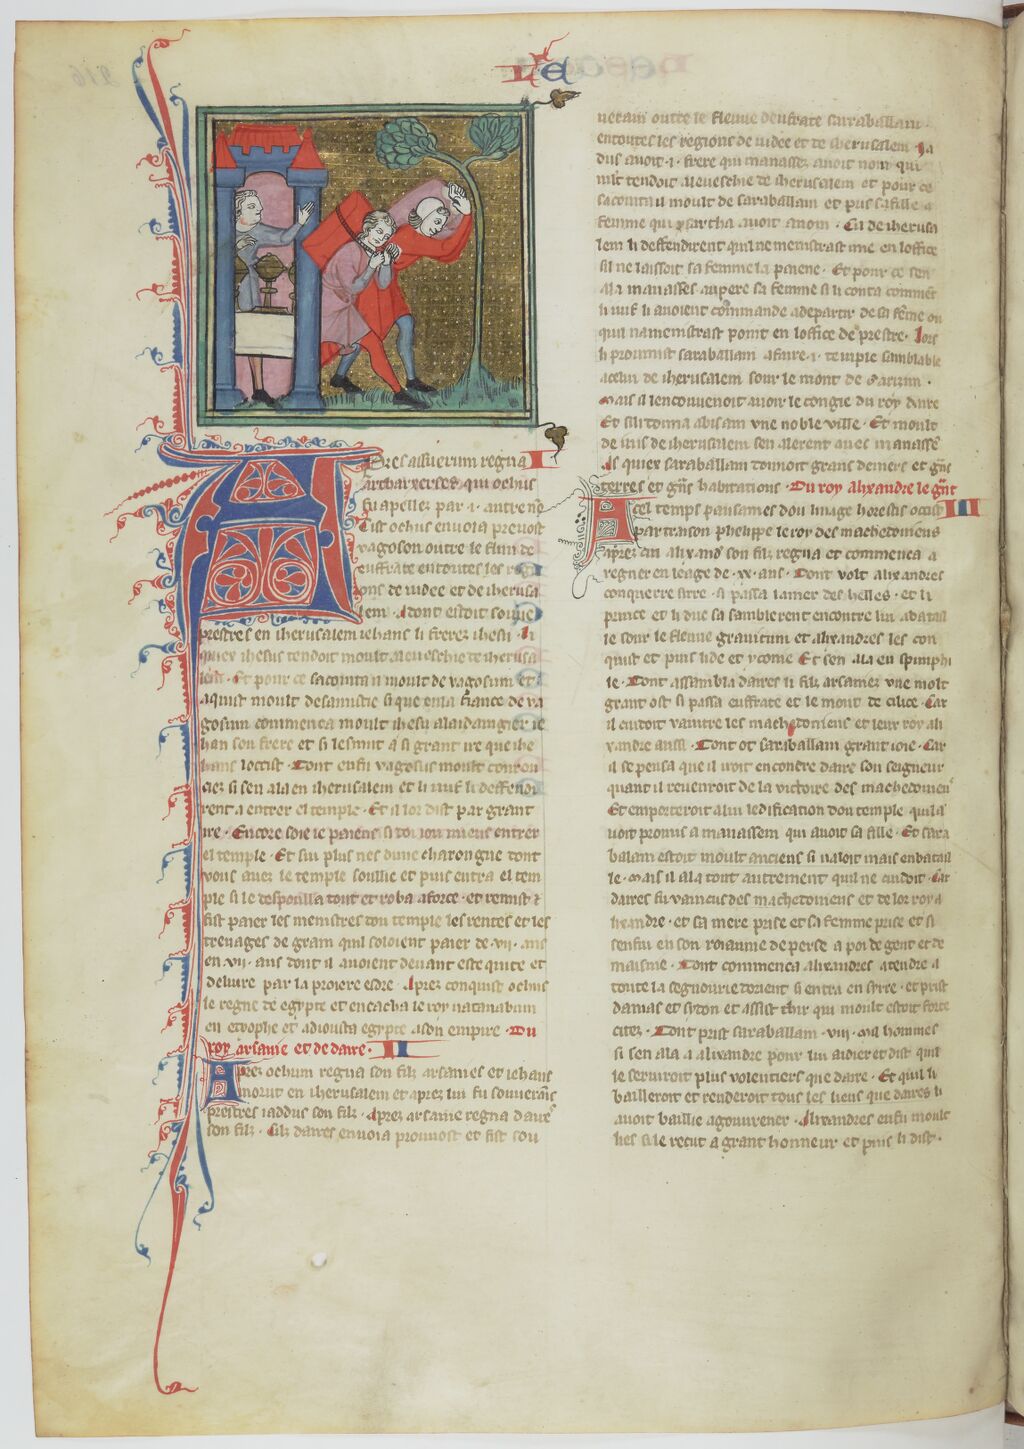 Le
Apres assuerum regna I
arthaxerses qui ochus
fu apellez par .i. autre nom
Cist ochus envoia prevost
vagoson outre le flun de
euffrate en toutes les regi
ons de iudee et de iherusa
lem . Adont estoit souvrein
prestres en iherusalem iehans li freres ihesu . li
quiex ihesus tendoit moult a leveschie de iherusa
lem . Et pour ce sacointa il moult de vagosum et
aquist moult desamistie si que en la fiance de va
gosum commenca moult ihesu a laidangier ie
han son frere et si lesmut a si grant ire que ihe
hans locist . Dont en fu vagosus moult courou
ciez si sen ala en iherusalem et li iuif li deffendi
rent a entrer el temple . Et il lor dist par grant
ire . Encore soie ie paiens si doi ion miens entrer
el temple . Et sui plus nes dune charongne dont
vous avez le temple souillie et puis entra el tem
ple si le despoulla tout et roba a force . et remist et
fist paier les menistres dou temple les rentes et les
treuages de grain quil soloient paier de .vii. ans
en .vii. ans dont il avoient devant este quite et
delivre par la proiere esdre . Apres conquist ochus
le regne de egypte et encacha le roy natanabum
en etyophe et adiousta egypte a son empire . Du
roy arsame et de daire . II
Apres ochum regna son filz arsames et iehans
morut en iherusalem et apres lui fu souverains
prestres iaddus son filz . Apres arsame regna daires
son filz . Cilz daires envoia prouvost et fist sou
verain outre le fleuve deufrate saraballam .
en toutes les regions de iudee et de iherusalem . Ia
dus avoit .i. frere qui manasses avoit nom qui
mlt tendoit a leveschie de iherusalem et pour ce
sacointa il moult de saraballam et prist sa fille a
femme qui psartha avoit a nom . Cil de iherusa
lem li deffendirent quil ne menistrast mie en loffice
sil ne laissoit sa femme la paiene . Et pour ce sen
ala manasses au pere sa femme si li conta comment
li iuif li avoient commande a departir de sa feme ou
quil namenistrast point en loffice de prestre . Lors
li proumist saraballam a faire .i. temple samblable
a celui de iherusalem sour le mont de Garizim .
Mais il lencouvenoit avoir le congie du roy daire
Et si li donna abisam une noble ville . Et moult
de iuis de iherusalem sen alerent avec manasse
As quiex saraballam donnoit grans deniers et grans
terres et grans habitations . Du roy alixandre le grant
A cel temps pausames dou linage horestis occist III
par traison phelippe le roy des machedoniens
apres cui alixandre son filz regna et commenca a
regner en leage de .xx. ans . Dont volt alixandres
conquerre sirre . si passa la mer des helles . et li
prince et li duc sa samblerent encontre lui a batail
le sour le fleuve granicum et alixandres les con
quist et prist lide et ycome Et sen ala en spimphi
lie . Dont assambla daires li filz arsamez une molt
grant ost si passa euffrate et le mont de cilice . Car
il cuidoit vaintre les machedoniens et leur roy ali
xandre aussi . Dont ot saraballam grant ioie . Car
il se pensa que il iroit encontre daire son seigneur
quant il revenroit de la victoire des machedoniens
Et emporteroit a lui ledification dou temple quil a
voit promis a manassem qui avoit sa fille . Et sara
balam estoit moult anciens si valoit mais en batail
le . Mais il ala tout autrement quil ne cuidoit . Car
daires fu vaincus des machedoniens et de lor roy a
lixandre . et sa mere prise et sa femme prise et si
senfui en son roiaume de perse a poi de gent et de
maisnie . Dont commenca alixandres a tendre a
toute la segnourie dorient si entra en syrie . et prist
damas et syton et assist thir qui moult estoit forte
citez . Dont prist saraballam .viii. M. hommes
si sen ala a alixandre pour lui aidier et dist quil
le serviroit plus volentiers que daire . Et quil li
bailleroit et renderoit tous les lieus que daires li
avoit baillie a gouvrener . Alixandres en fu moult
lies si le recut a grant honneur et puis li dist .